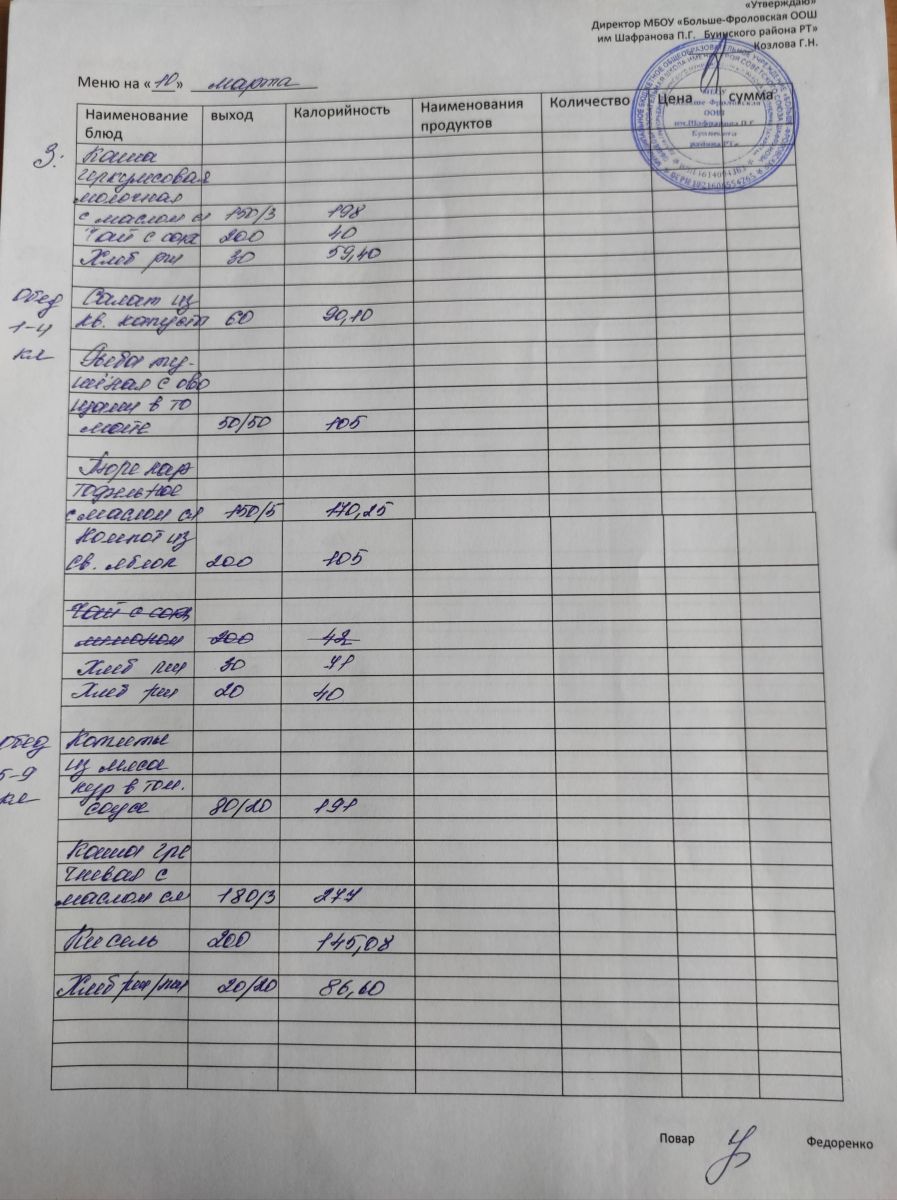 «Утверждаю»
Директор МБОУ «Больше-Фроловская ООШ
им Шафранова П.Г. Буинского района РТ»
Козлова Г.Н.
Меню на «10» марта
Наименование блюд выход Калорийность Наименования продуктов Количество Цена сумма
З: Каша
геркулесовая
молочная
с маслом сл 150/3 198
Чай с сах 200 40
Хлеб рж 30 59,40
Обед Салат из
1-4 кв. капусты 60 90,10
кл Рыба ту-
шёная с ово
щами в то
мате 50/50 105
Пюре кар
тофельное
с маслом сл 150/5 170,25
Компот из
св. яблок 200 105
Чай с сах
лимоном 200 42
Хлеб пш 30 71
Хлеб рж 20 40
обед Котлеты
из мяса
5-9 кур в том.
кл соусе 80/20 191
Каша гре
чневая с
маслом сл 180/3 277
Кисель 200 145,08
Хлеб рж/пш 20/20 86,60
Повар Федоренко